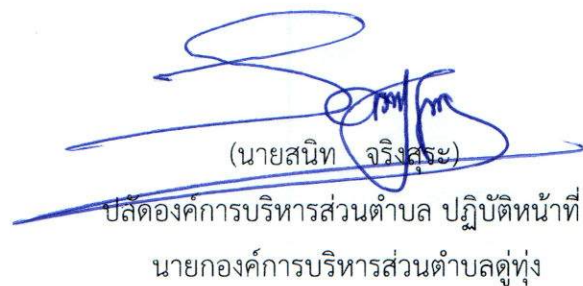 (นายสนิท จริงสุระ)
ปลัดองค์การบริหารส่วนตำบล ปฏิบัติหน้าที่
นายกองค์การบริหารส่วนตำบลดู่ทุ่ง